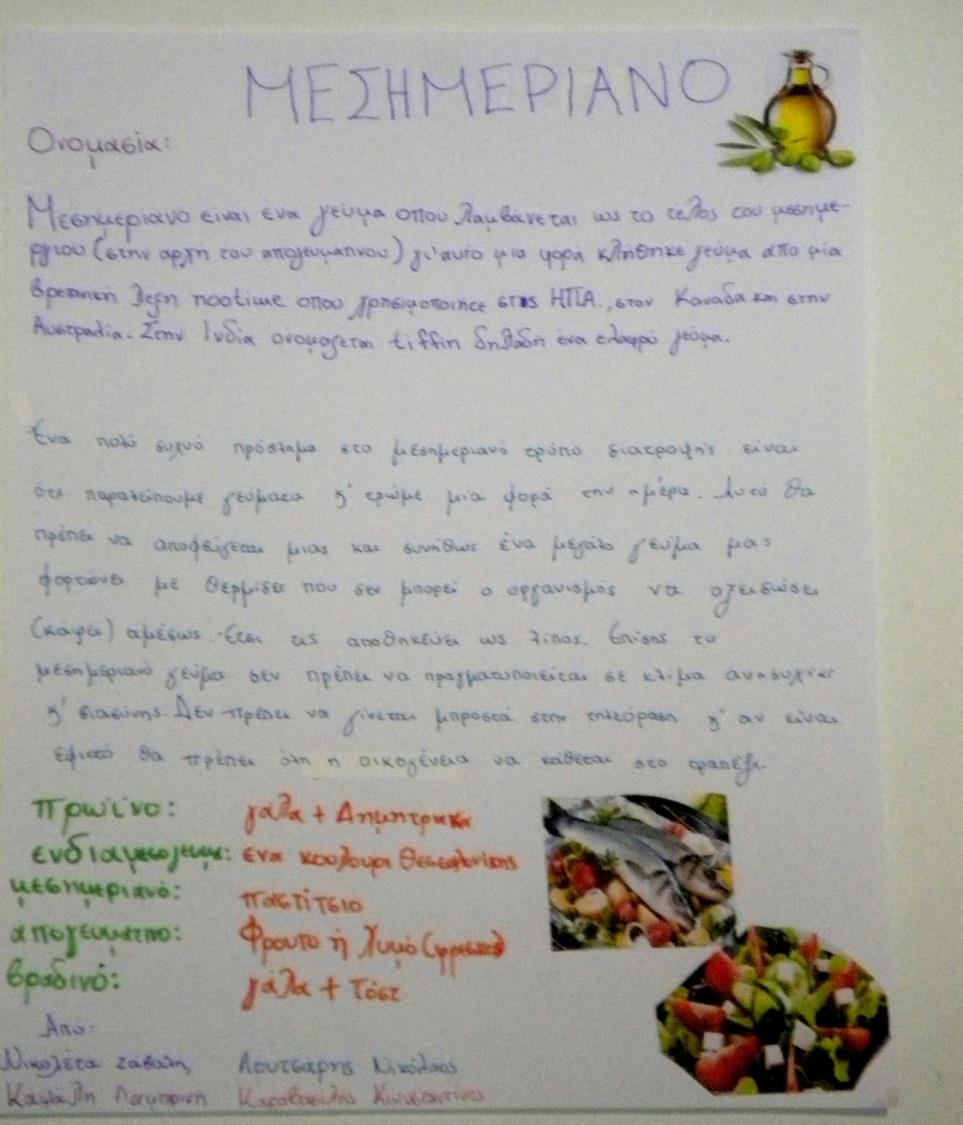 ΜΕΣΗΜΕΡΙΑΝΟ
Ονομασία:
Μεσημεριανο ειναι ενα γευμα οπου λαμβάνεται ως το τέλος του μεσημε-
ργιου (στην αρχη του απογευματινου) γι'αυτο μια φορά κλήθηκε γεύμα απο μία
βρετανική λεξη nootime οπου χρησιμοποιήσε στις ΗΠΑ., στον Καναδα και στην
Αυστραλία. Στην Ινδία ονομαζεται tiffin δηλαδή ένα ελαφρύ γεύμα.
Ένα πολύ συχνό πρόβλημα στο μεσημεριανό τρόπο διατροφής είναι
οτι παραλείπουμε γεύματα κ' τρώμε μία φορά την ημέρα. Αυτό θα
πρέπει να αποφεύγεται μιας και συνήθως ένα μεγάλο γεύμα μας
φορτώνει με θερμίδες που δεν μπορεί ο οργανισμός να οξειδώσει
(κάψει) αμέσως. Έτσι τις αποθηκεύει ως λίπος. Επίσης το
μεσημεριανό γεύμα δεν πρέπει να πραγματοποιείται σε κλίμα ανησυχίας
κ' βιασύνης. Δεν πρέπει να γίνεται μπροστά στην τηλεόραση κ' αν είναι
εφικτό θα πρέπει όλη η οικογένεια να κάθεται στο τραπέζι.
πρωϊνο: γαλα + Δημητριακα
ενδιαμεσογευμα: ενα κουλουρι Θεσσαλονίκης
μεσημεριανό: παστίτσιο
απογευματινο: Φρουτο ή Χυμό (φρεσκο)
βραδινό: γάλα + Τόστ
Από:
Νικολέτα Λουτσάρης Νικόλαος
Καραβασίλης Κωνσταντίνος